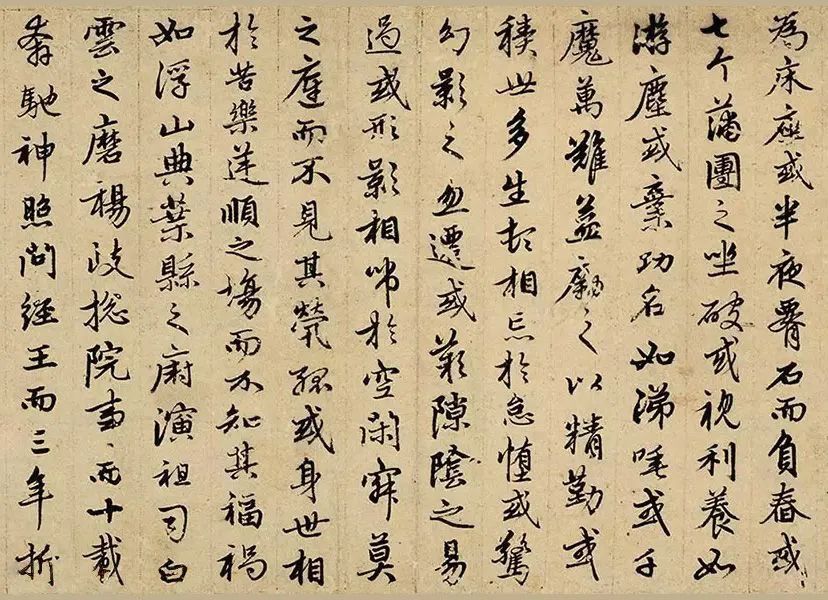 為床座或半夜石而負舂或
七个蒲團之坐破或視利養如
游塵或棄功名如涕唾或千
魔萬難益勵之以精勤或
積世多生頓相忘於怠惰或驚
幻影之忽遷或嘆隙陰之易
過或形影相吊於空閑寂莫
之庭而不見其煢孤或身世相
於苦樂逆順之場而不知其福禍
如浮山典葉縣之廚演祖司白
雲之磨楊歧捴院事而十載
奔馳神照經王而三年折